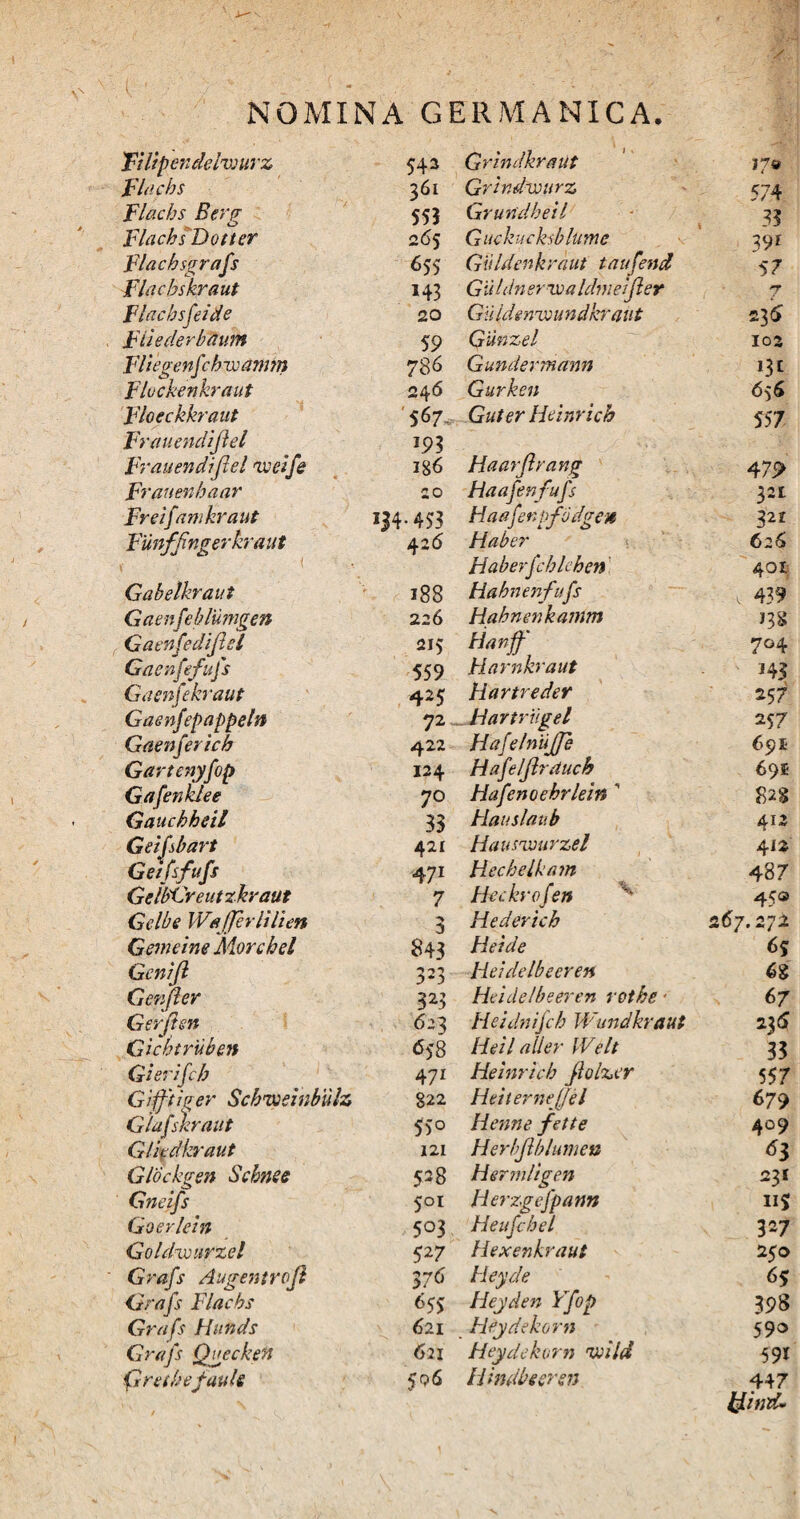 NOMINA GERMANICA.
Filipendelwurz 542
Flachs 361
Flachs Berg 553
Flachs Dotter 265
Flachsgrafs 655
Flachskraut 143
Flachsfeide 20
Fliederbaum 59
Fliegenschwamm 786
Flockenkraut 246
Floeckkraut 567
Frauendistel 193
Frauendistel weise 186
Frauenhaar 20
Freisamkraut 134. 453
Fünffingerkraut 426
Gabelkraut 188
Gaenseblümgen 226
Gaensedistel 215
Gaensefufs 559
Gaensekraut 425
Gaensepappeln 72
Gaenserich 422
Gartenysop 124
Gasenklee 70
Gauchheil 33
Geifsbart 421
Geifsfufs 471
GelbCreutzkraut 7
Gelbe Wasserlilien 3
Gemeine Morchel 843
Genist 323
Genster 323
Gersten 623
Gichtrüben 658
Gierisch 471
Gifftiger Schweinbülz 822
Glafskraut 550
Gliedkraut 121
Glöckgen Schnee 528
Gneifs 501
Goerlein 503
Goldwurzel 527
Grafs Augentrost 376
Grafs Flachs 655
Grafs Hunds 621
Grafs Quecken 621
Grethe faule 506
Grindkraut 170
Grindwurz 574
Grundheil 33
Guckucksblume 391
Güldenkraut tausend 57
Güldnerwaldmeister 7
Güldenwundkraut 236
Günzel 102
Gundermann 131
Gurken 656
Guter Heinrich 557
Haarstrang 479
Haasenfufs 321
Haasenpfödgen 321
Haber 626
Haberschlehen 401
Hahnenfufs 439
Hahnenkamm 138
Hanff 704
Harnkraut 143
Hartreder 257
Hartrügel 257
Haselnüsse 691
Haselstrauch 691
Hasenoehrlein 828
Hauslaub 412
Hauswurzel 412
Hechelkam 487
Heckrosen 450
Hederich 267. 272
Heide 65
Heidelbeeren 68
Heidelbeeren rothe 67
Heidnisch Wundkraut 236
Heil aller Welt 33
Heinrich stolzer 557
Heiternessel 679
Henne fette 409
Herbstblumen 63
Hermligen 231
Herzgespann 115
Heuschel 327
Hexenkraut 250
Heyde 65
Heyden Ysop 398
Heydekorn 590
Heydekorn wild 591
Hindbeeren 447
Hind-